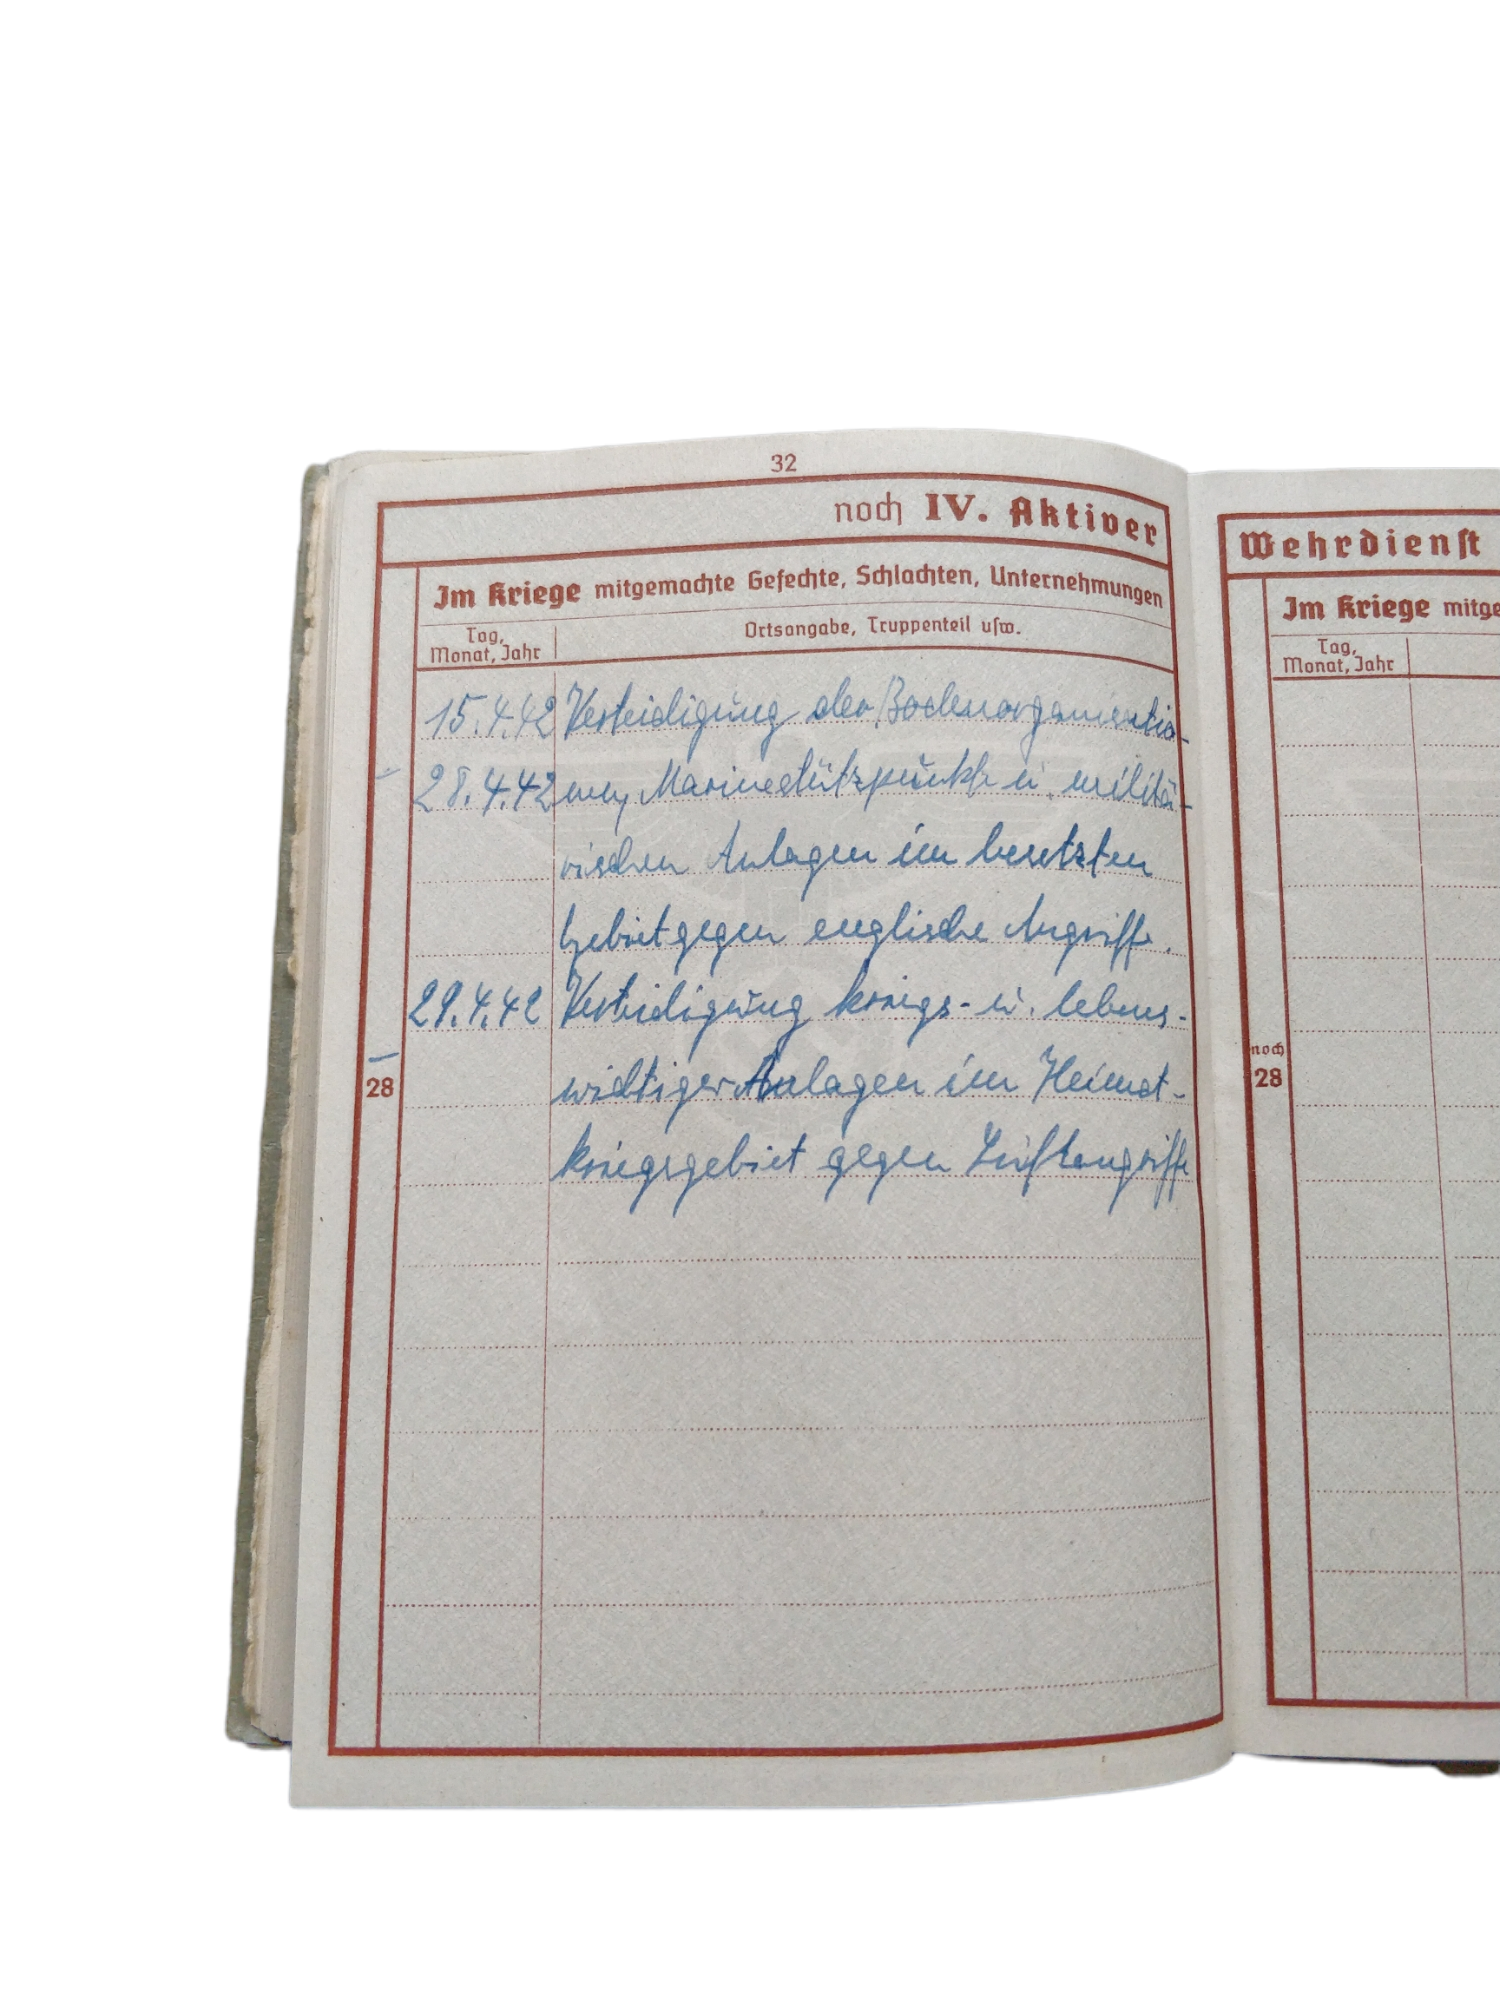 32
noch IV. Aktiver
Im Kriege mitgemachte Gefechte, Schlachten, Unternehmungen
Tag, Monat, Jahr
Ortsangabe, Truppenteil usw.
15.4.42 Verteidigung der Bodenorganisatio-
– 28.4.42 nen, Marinestützpunkte u. militä-
rischen Anlagen im besetzten
Gebiet gegen englische Angriffe.
29.4.42 Verteidigung kriegs- u. lebens-
–
28
wichtiger Anlagen im Heimat-
kriegsgebiet gegen Luftangriffe
Wehrdienst
Im Kriege mitge
Tag, Monat, Jahr
noch
28